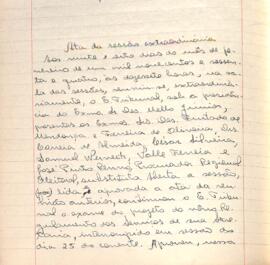 Ata da sessão extraordinária
Aos vinte e oito dias do mês de fe-
vereiro de um mil novecentos e sessen-
ta e quatro, às dezesseis horas, na sa-
la das sessões, reuniu-se, extraordina-
riamente, o E. Tribunal, sob a presidên-
cia do Exmo. Sr. Des. Mello Júnior,
presentes os Exmos. Srs. Des. Furtado de
Mendonça e Ferreira de Oliveira, Drs.
Correia de Almeida, César Silveira,
Samuel Werneck, Valle Ferreira e
José Pinto Renno, Procurador Regional
Eleitoral, substituto. Aberta a sessão,
lida e aprovada a ata da reu-
nião anterior, continuou o E. Tribu-
nal o exame do projeto do novo Re-
gulamento dos Serviços de sua Secre-
taria, interrompido em sessão do
dia 25 do corrente. Aprovou, nessa